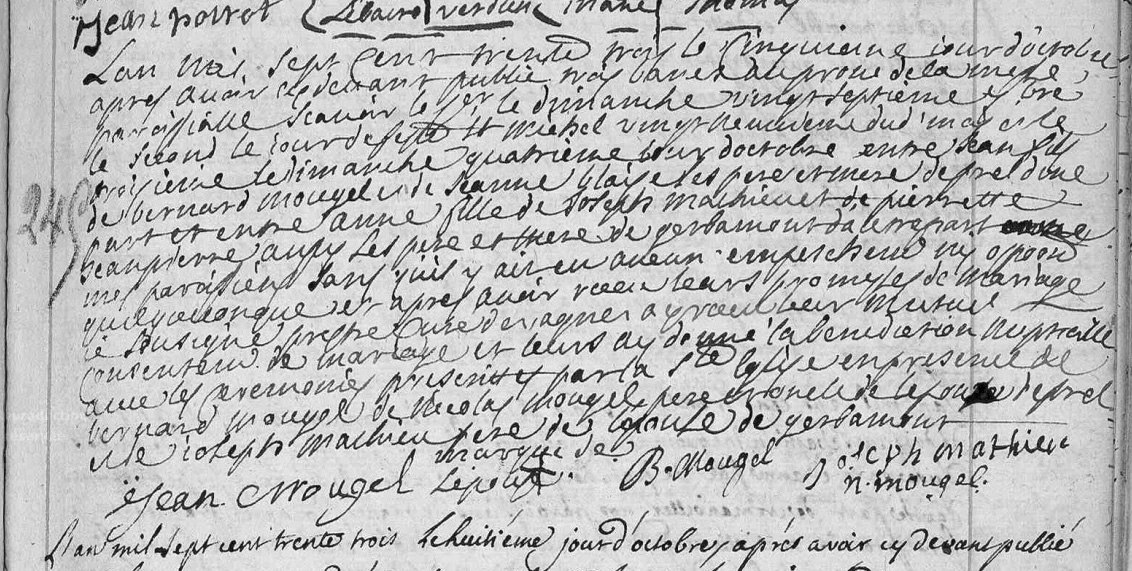 Jean poirot Lecaire verdenal marie Thomas
Lan mil sept cent trente trois le cinquieme jour d'octobre
apres avoir cy devant publie trois bans au prone de la messe
paroissialle scavoir le 1er le dimanche vingt septieme 7bre
le second le jour de feste st michel vingt neuvieme dud' mois et le
troisieme le dimanche quatrieme jour d'octobre entre Jean fils
de bernard mougel et de Jeanne blaise les pere et mere de prel dune
part et entre anne fille de Joseph mathieu et de pierrette
beaupierre aussy les pere et mere de gerbamont dautrepart
mes paroissiens sans quil y ait eu aucun empeschemt ny opposn
quelquonque et apres avoir receu leurs promesses de mariage
Je soussigné prestre curé de vagney ay receu leur mutuel
consentemt de mariage et leurs ay donné la benediction nuptialle
avec les ceremonies prescrittes par la ste Eglise en presence de
bernard mougel de Nicolas mougel pere et oncle de lespoux de prel
et de ioseph mathieu pere de lepouse de gerbamont
marque de
Jean Mougel Lepouse B. Mougel Joseph mathieu
n. mougel.
Lan mil sept cent trente trois le huitiéme jour d'octobre, aprés avoir cy devant publié